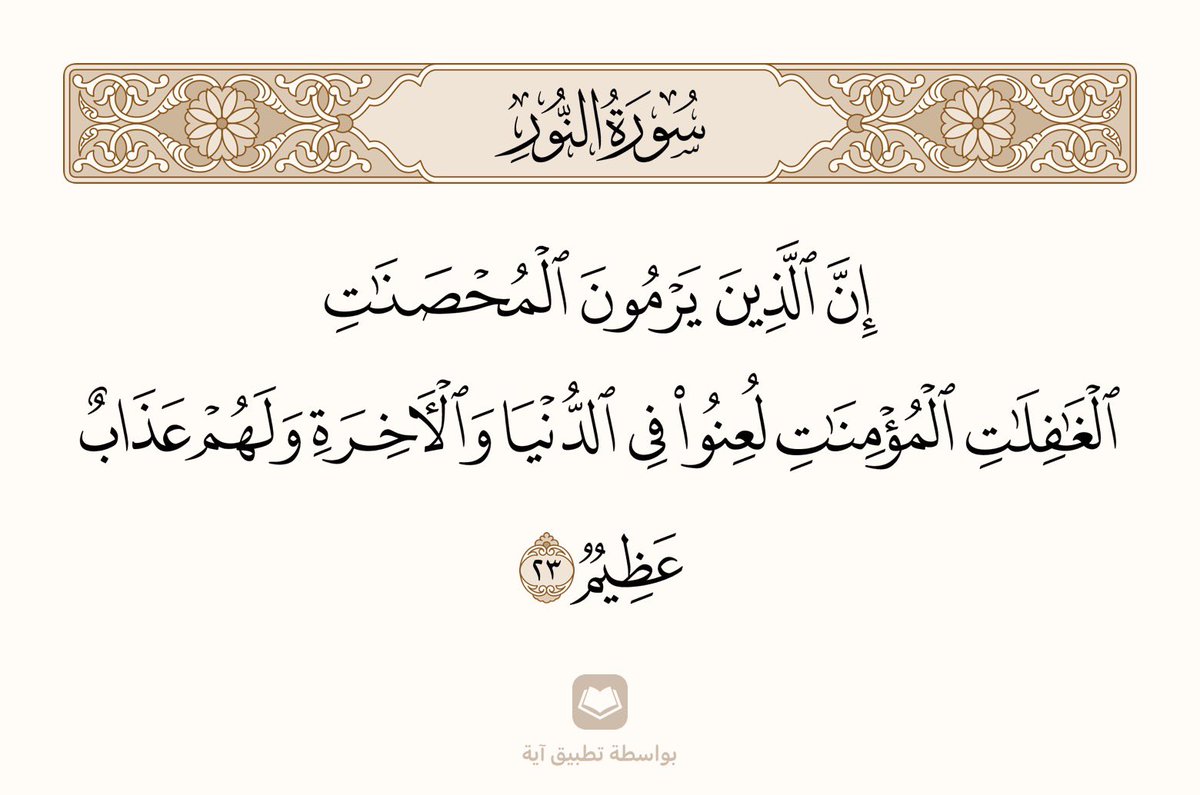 سُورَةُ النُّورِ
إِنَّ ٱلَّذِينَ يَرۡمُونَ ٱلۡمُحۡصَنَٰتِ
ٱلۡغَٰفِلَٰتِ ٱلۡمُؤۡمِنَٰتِ لُعِنُواْ فِي ٱلدُّنۡيَا وَٱلۡأٓخِرَةِ وَلَهُمۡ عَذَابٌ
عَظِيمٞ ٢٣
بواسطة تطبيق آية